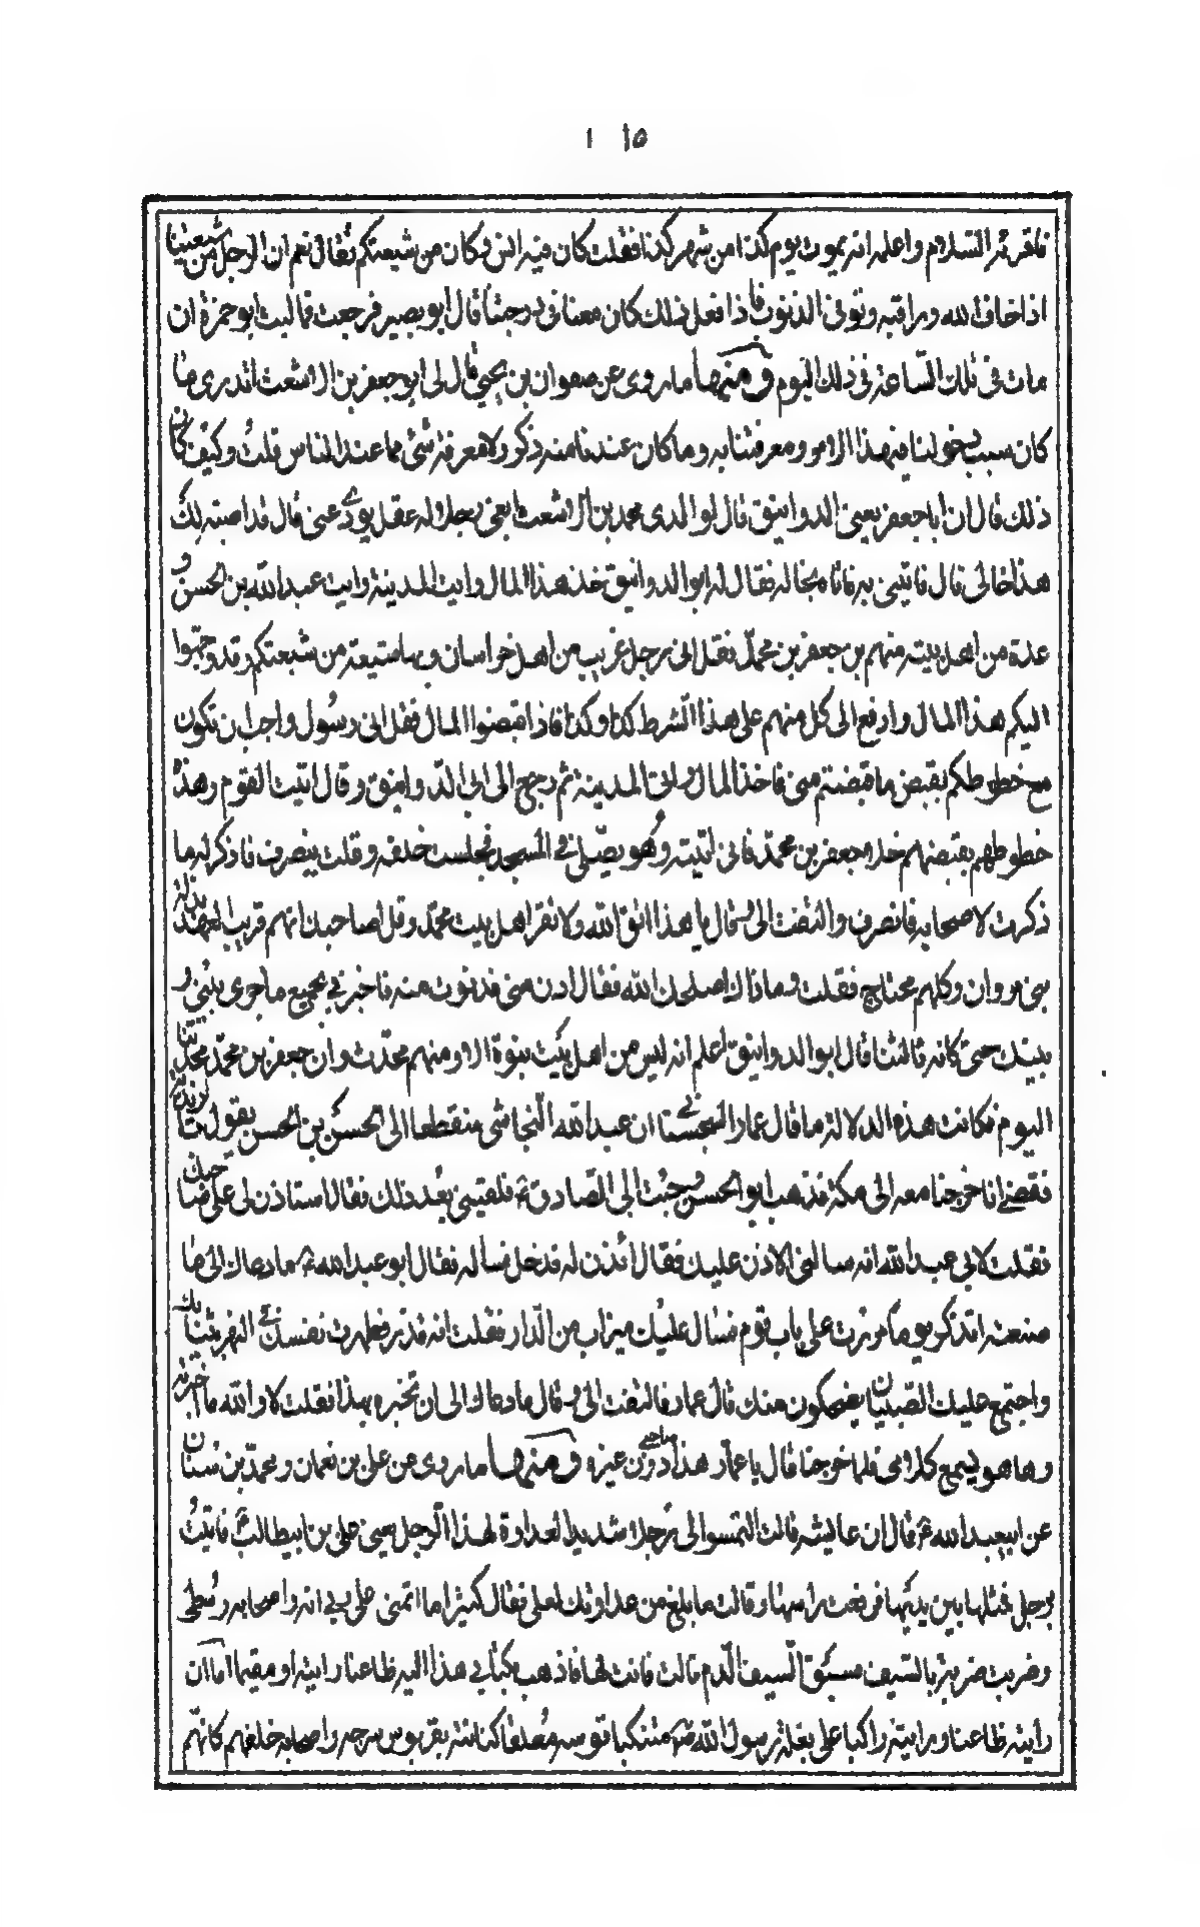 ١٥١
فاقرئه السلام واعلمه انه يموت يوم كذا من شهر كذا فقلت كان فيه انس وكان من شيعتكم فقال نعم ان الرجل من شيعتنا
اذا خاف الله وراقبه وتوقى الذنوب فاذا فعل ذلك كان معنا فى درجتنا قال ابو بصير فرجعت فما لبث ابو حمزة ان
مات فى تلك الساعة فى ذلك اليوم ومنها ما روى عن صفوان بن يحيى قال لى ابو جعفر بن الاشعث اتدرى ما
كان سبب دخولنا فى هذا الامر ومعرفتنا به وما كان عندنا منه ذكر ولا معرفة شئ مما عند الناس قلت وكيف كان
ذلك قال ان ابا جعفر يعنى الدوانيق قال لوالدى محمد بن الاشعث ابغنى رجلا له عقل يؤدى عنى قال قد اصبته لك
هذا خالى قال فاتينى به فاتاه بخاله فقال له ابو الدوانيق خذ هذا المال وايت المدينة وايت عبد الله بن الحسن و
عدة من اهل بيته منهم بن جعفر بن محمد فقل انى رجل غريب من اهل خراسان وبها شيعة من شيعتكم وقد وجهوا
اليكم هذا المال وادفع الى كل منهم على هذا الشرط كذا وكذا فاذا قبضوا المال فقل انى رسول واحب ان تكون
مع خطوطكم بقبض ما قبضتم منى فاخذ المال واتى المدينة ثم رجع الى ابى الدوانيق وقال اتيت القوم وهذه
خطوطهم بقبضهم خلا جعفر بن محمد فانى اتيته وهو يصلى فى المسجد فجلست خلفه وقلت ينصرف فاذكر له ما
ذكرت لاصحابه فانصرف والتفت الى وقال يا هذا اتق الله ولا تغر اهل بيت محمد وقل لصاحبك انهم قريب العهد بدولة
بنى مروان وكلهم محتاج فقلت وما ذاك اصلحك الله فقال ادن منى فدنوت منه فاخبرنى بجميع ما جرى بينى و
بينك حتى كانه ثالثنا قال ابو الدوانيق اعلم انه ليس من اهل بيت نبوة الا ومنهم محدث وان جعفر بن محمد محدثنا
اليوم فكانت هذه الدلالة ما قال عمار السجستانى ان عبد الله النجاشى منقطعا الى الحسن بن الحسن يقول
فقضى انا خرجنا معه الى مكة فذهب ابو الحسن وجئت الى الصادق ع فلقينى بعد ذلك فقال استاذن لى على صاحبك
فقلت لابى عبد الله انه سالنى الاذن عليك فقال ائذن له فدخل فساله فقال ابو عبد الله ع ما دعاك الى ما
صنعت اتذكر يوما مررت على باب قوم فسال عليك ميزاب من الدار فقلت انه قذر فطهرت نفسك فى النهر بثيابك
واجتمع عليك الصبيان يضحكون منك قال عمار فالتفت الى وقال ما دعاك الى ان تخبره بهذا فقلت لا والله ما اخبرته
وها هو يسمع كلامى فلما خرجنا قال يا عمار هذا صاحبى دون غيره ومنها ما روى عن على بن نعمان ومحمد بن سنان
عن ابيعبد الله ع قال ان عايشه قالت التمسوا لى رجلا شديد العداوة لهذا الرجل يعنى على بن ابيطالب فاتيت
برجل فمثلها بين يديها فرفعت راسها وقالت ما بلغ من عداوتك لعلى فقال كثيرا ما اتمنى على ربى انه واصحابه وسطى
وضربت ضربة بالسيف يسبق السيف الدم قالت فانت لها فاذهب بكتابى هذا اليه ظاعنا رايته او مقيما اما ان
رايته ظاعنا رايته راكبا على بغلة رسول الله ص متنكبا قوسه معلقا كنانته بقربوس سرجه واصحابه خلفهم كانهم